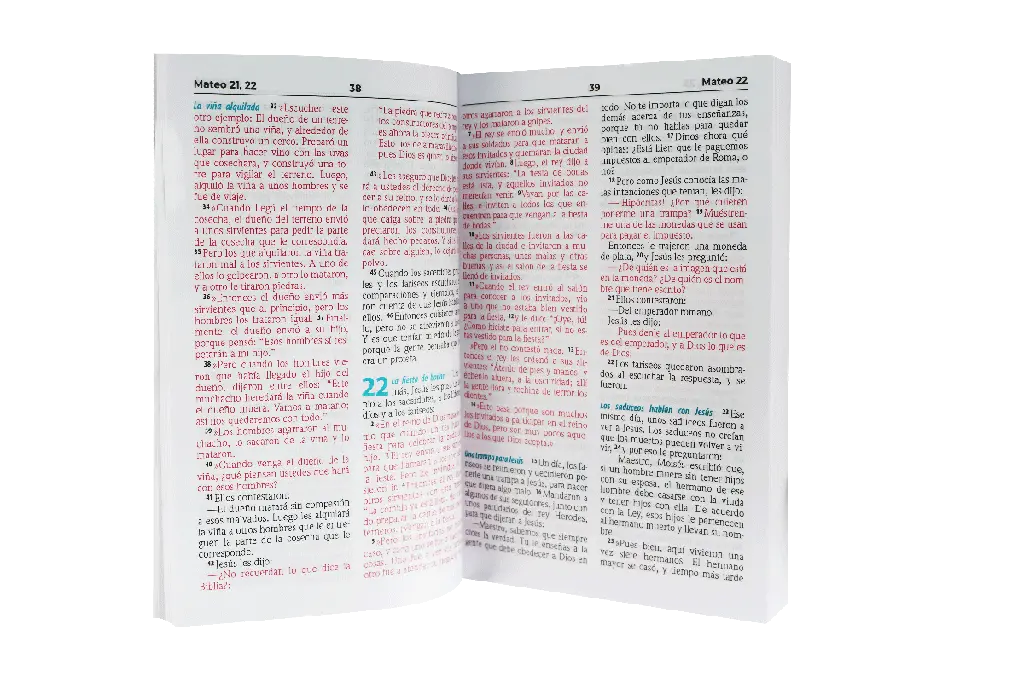 Mateo 21, 22
38
La viña alquilada 33 »Escuchen este
otro ejemplo: El dueño de un terre-
no sembró una viña, y alrededor de
ella construyó un cerco. Preparó un
lugar para hacer vino con las uvas
que cosechara, y construyó una to-
rre para vigilar el terreno. Luego,
alquiló la viña a unos hombres y se
fue de viaje.
34 »Cuando llegó el tiempo de la
cosecha, el dueño del terreno envió
a unos sirvientes para pedir la parte
de la cosecha que le correspondía.
35 Pero los que alquilaron la viña tra-
taron mal a los sirvientes. A uno de
ellos lo golpearon, a otro lo mataron,
y a otro le tiraron piedras.
36 »Entonces el dueño envió más
sirvientes que al principio, pero los
hombres los trataron igual. 37 Final-
mente, el dueño envió a su hijo,
porque pensó: “Esos hombres sí res-
petarán a mi hijo.”
38 »Pero cuando los hombres vie-
ron que había llegado el hijo del
dueño, dijeron entre ellos: “Este
muchacho heredará la viña cuando
el dueño muera. Vamos a matarlo;
así nos quedaremos con todo.”
39 »Los hombres agarraron al mu-
chacho, lo sacaron de la viña y lo
mataron.
40 »Cuando venga el dueño de la
viña, ¿qué piensan ustedes que hará
con esos hombres?
41 Ellos contestaron:
—El dueño matará sin compasión
a esos malvados. Luego les alquilará
la viña a otros hombres que le entre-
guen la parte de la cosecha que le
corresponde.
42 Jesús les dijo:
—¿No recuerdan lo que dice la
Biblia?:
“La piedra que
los constructores
es ahora la piedra
Esto nos
pues Dios es quien lo
43 »Les aseguro que Dios
rá a ustedes el derecho de
cer a su reino, y se lo dará a
lo obedecen en todo. 44
que caiga sobre la piedra
preciaron los constructores
dará hecho pedazos. Y si la
cae sobre alguien, lo
polvo.
45 Cuando los sacerdotes
les y los fariseos escucharon
comparaciones y ejemplos,
ron cuenta de que Jesús
ellos. 46 Entonces quisieron
lo, pero no se atrevieron a
Y es que tenían miedo de
porque la gente pensaba que
era un profeta.
22 La fiesta de bodas
más, Jesús les puso
plo a los sacerdotes, a los
díos y a los fariseos:
2 »En el reino de Dios
mo que cuando un
fiesta para celebrar la
hijo. 3 El rey envió a sus
para que llamaran a los
la fiesta. Pero los invitados
sieron ir.
otros sirvientes con este
“La comida ya está
do preparar la carne de
terneros. ¡Vengan a la fiesta
5 »Pero los invitados
caso, y cada uno
cosas. Uno fue a ver
otro fue a atender su
39
Mateo 22
otros agarraron a los sirvientes del
rey y los mataron a golpes.
7 »El rey se enojó mucho, y envió
a sus soldados para que mataran a
esos invitados y quemaran la ciudad
donde vivían. 8 Luego, el rey dijo a
sus sirvientes: “La fiesta de bodas
está lista, y aquellos invitados no
merecían venir. 9 Vayan por las ca-
lles, e inviten a todos los que en-
cuentren para que vengan a la fiesta
de bodas.”
10 »Los sirvientes fueron a las ca-
lles de la ciudad e invitaron a mu-
chas personas, unas malas y otras
buenas; y así el salón de la fiesta se
llenó de invitados.
11 »Cuando el rey entró al salón
para conocer a los invitados, vio
a uno que no estaba bien vestido
para la fiesta, 12 y le dijo: “¡Oye, tú!
¿Cómo hiciste para entrar, si no es-
tás vestido para la fiesta?”
»Pero él no contestó nada. 13 En-
tonces el rey les ordenó a sus sir-
vientes: “Átenlo de pies y manos, y
échenlo afuera, a la oscuridad; allí
la gente llora y rechina de terror los
dientes.”
14 »Esto pasa porque son muchos
los invitados a participar en el reino
de Dios, pero son muy pocos aque-
llos a los que Dios acepta.»
Una trampa para Jesús 15 Un día, los fa-
riseos se reunieron y decidieron po-
nerle una trampa a Jesús, para hacer
que dijera algo malo. 16 Mandaron a
algunos de sus seguidores, junto con
unos partidarios del rey Herodes,
para que dijeran a Jesús:
—Maestro, sabemos que siempre
dices la verdad. Tú le enseñas a la
gente que debe obedecer a Dios en
todo. No te importa lo que digan los
demás acerca de tus enseñanzas,
porque tú no hablas para quedar
bien con ellos. 17 Dinos ahora qué
opinas: ¿Está bien que le paguemos
impuestos al emperador de Roma, o
no?
18 Pero como Jesús conocía las ma-
las intenciones que tenían, les dijo:
—¡Hipócritas! ¿Por qué quieren
ponerme una trampa? 19 Muéstren-
me una de las monedas que se usan
para pagar el impuesto.
Entonces le trajeron una moneda
de plata, 20 y Jesús les preguntó:
—¿De quién es la imagen que está
en la moneda? ¿De quién es el nom-
bre que tiene escrito?
21 Ellos contestaron:
—Del emperador romano.
Jesús les dijo:
—Pues denle al emperador lo que
es del emperador, y a Dios lo que es
de Dios.
22 Los fariseos quedaron asombra-
dos al escuchar la respuesta, y se
fueron.
Los saduceos hablan con Jesús 23 Ese
mismo día, unos saduceos fueron a
ver a Jesús. Los saduceos no creían
que los muertos pueden volver a vi-
vir, 24 y por eso le preguntaron:
—Maestro, Moisés escribió que,
si un hombre muere sin tener hijos
con su esposa, el hermano de ese
hombre debe casarse con la viuda
y tener hijos con ella. De acuerdo
con la Ley, esos hijos le pertenecen
al hermano muerto y llevan su nom-
bre.
25 »Pues bien, aquí vivieron una
vez siete hermanos. El hermano
mayor se casó, y tiempo más tarde